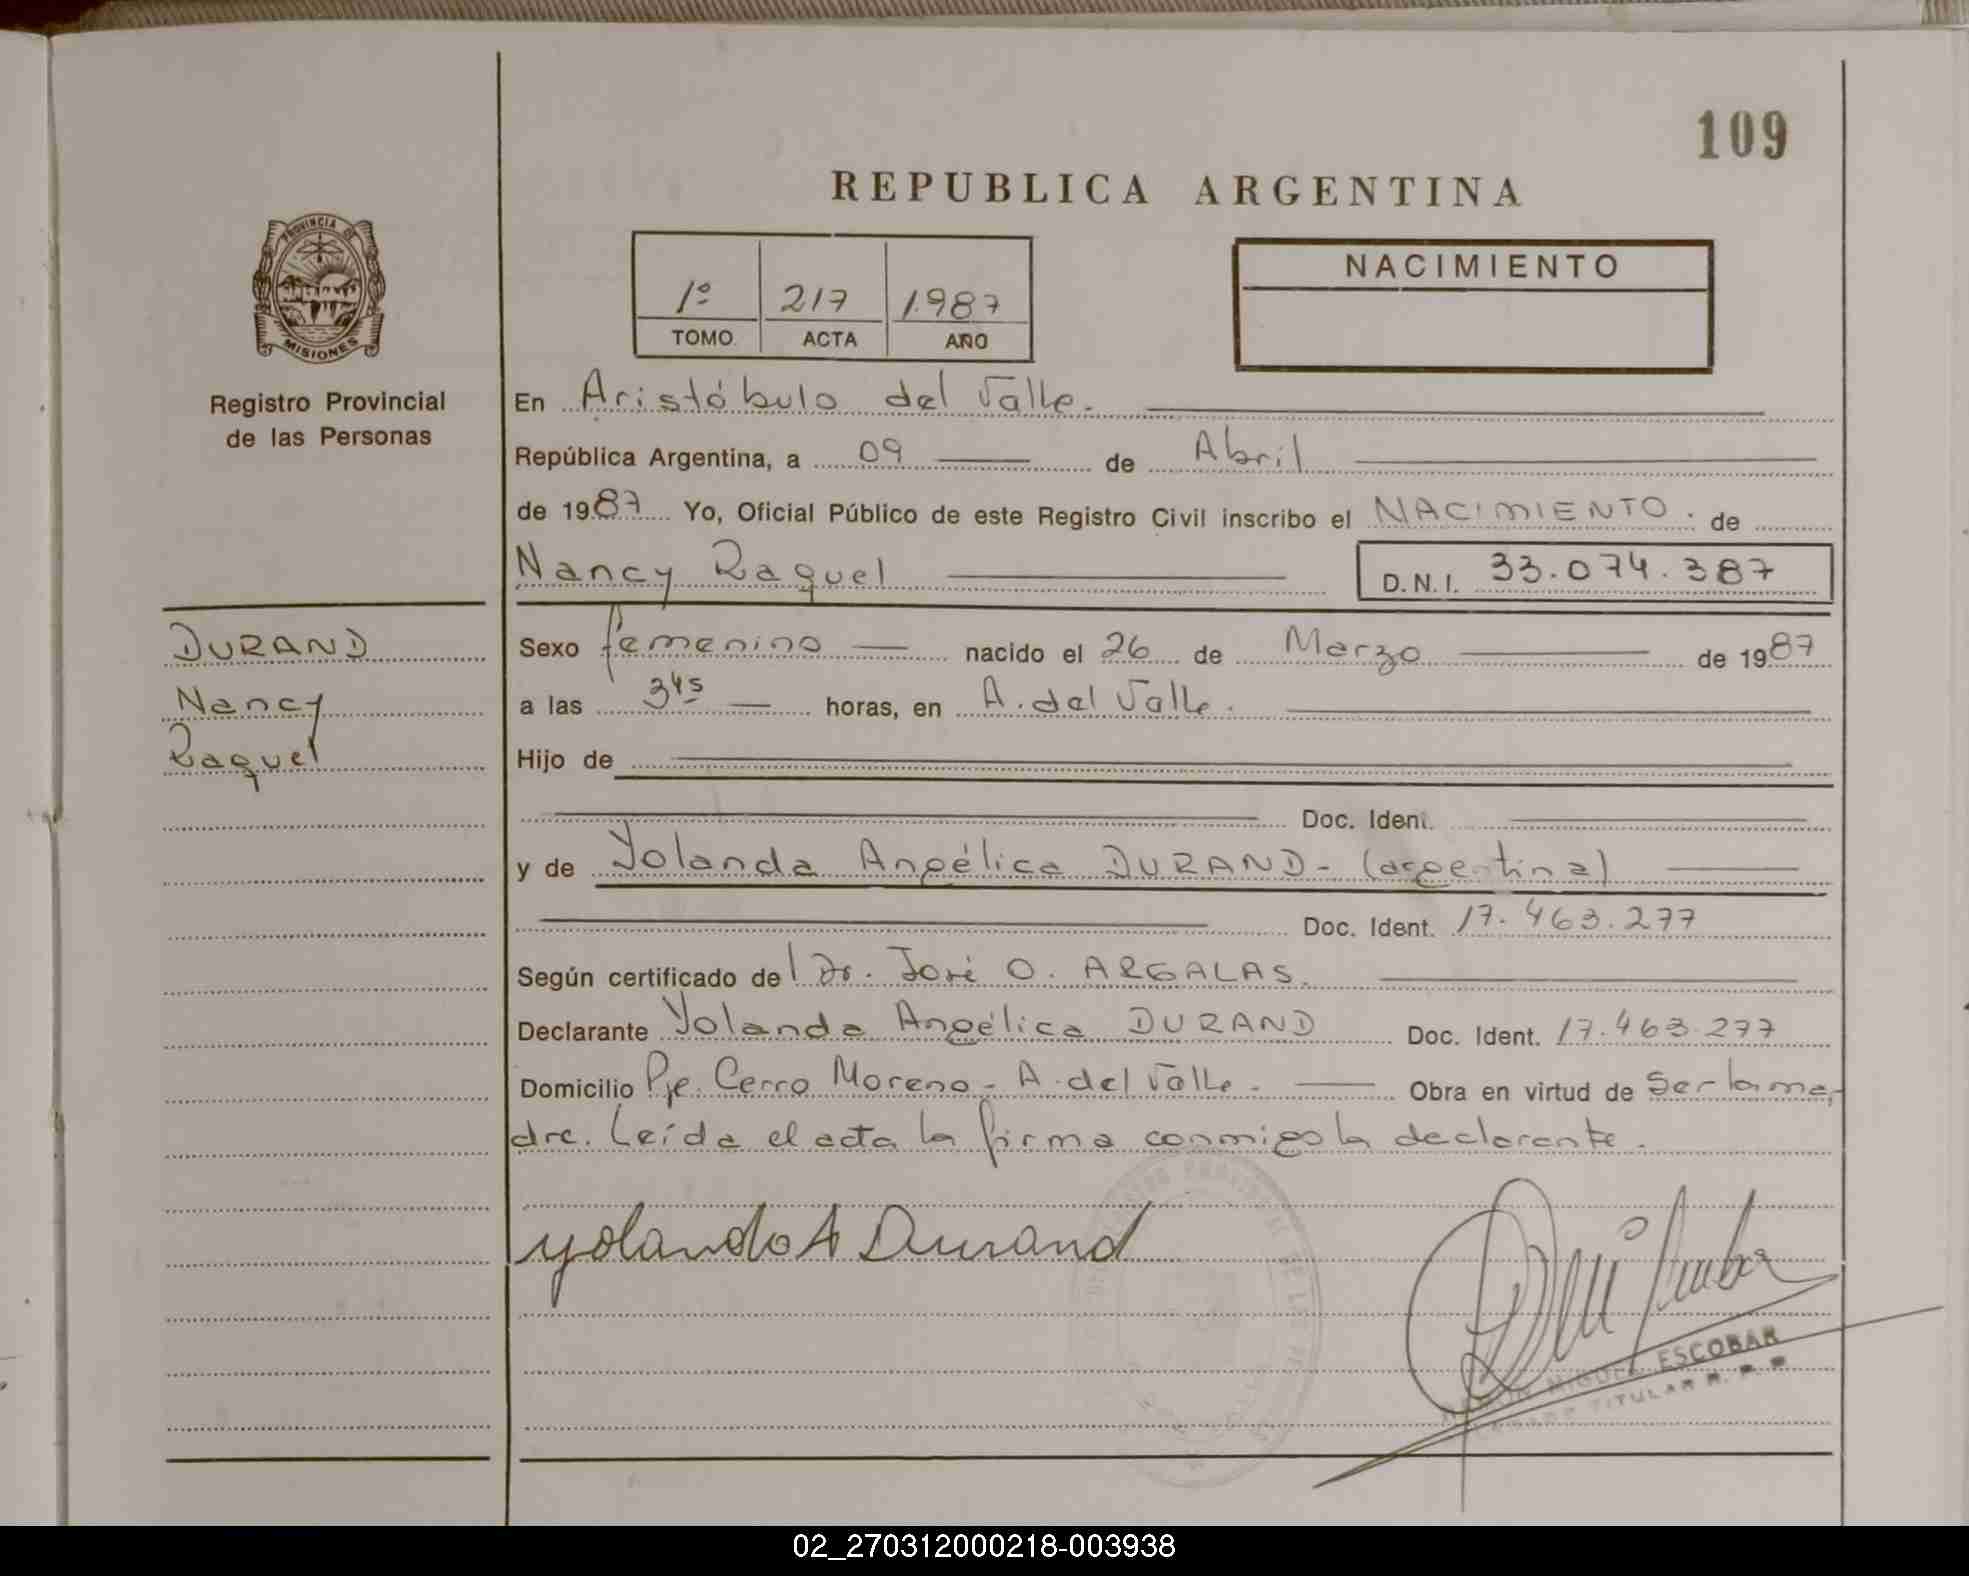 109
REPUBLICA ARGENTINA
PROVINCIA DE
MISIONES
Registro Provincial
de las Personas
1º 217 1.987
TOMO ACTA AÑO
NACIMIENTO
En Aristóbulo del Valle.
República Argentina, a 09 de Abril
de 1987 Yo, Oficial Público de este Registro Civil inscribo el NACIMIENTO. de
Nancy Raquel D.N.I. 33.074.387
DURAND
Nancy
Raquel
Sexo femenino nacido el 26 de Marzo de 1987
a las 3⁴⁵ horas, en A. del Valle.
Hijo de
Doc. Ident.
y de Yolanda Angélica DURAND - (argentina)
Doc. Ident. 17.463.277
Según certificado del Dr. José O. ARGALAS.
Declarante Yolanda Angélica DURAND Doc. Ident. 17.463.277
Domicilio Pje. Cerro Moreno - A. del Valle. Obra en virtud de Ser la ma-
dre. Leída el acta la firma conmigo la declarante.
Yolanda A Durand
MIGUEL ESCOBAR
TITULAR
02_270312000218-003938